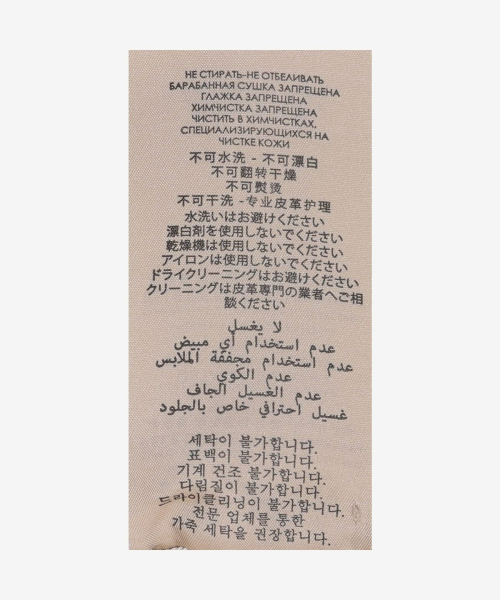 НЕ СТИРАТЬ-НЕ ОТБЕЛИВАТЬ
БАРАБАННАЯ СУШКА ЗАПРЕЩЕНА
ГЛАЖКА ЗАПРЕЩЕНА
ХИМЧИСТКА ЗАПРЕЩЕНА
ЧИСТИТЬ В ХИМЧИСТКАХ,
СПЕЦИАЛИЗИРУЮЩИХСЯ НА
ЧИСТКЕ КОЖИ
不可水洗 - 不可漂白
不可翻转干燥
不可熨烫
不可干洗 -专业皮革护理
水洗いはお避けください
漂白剤を使用しないでください
乾燥機は使用しないでください
アイロンは使用しないでください
ドライクリーニングはお避けください
クリーニングは皮革専門の業者へご相
談ください
لا يغسل
عدم استخدام أي مبيض
عدم استخدام مجففة الملابس
عدم الكوي
عدم الغسيل الجاف
غسيل احترافي خاص بالجلود
세탁이 불가합니다.
표백이 불가합니다.
기계 건조 불가합니다.
다림질이 불가합니다.
드라이클리닝이 불가합니다.
전문 업체를 통한
가죽 세탁을 권장합니다.